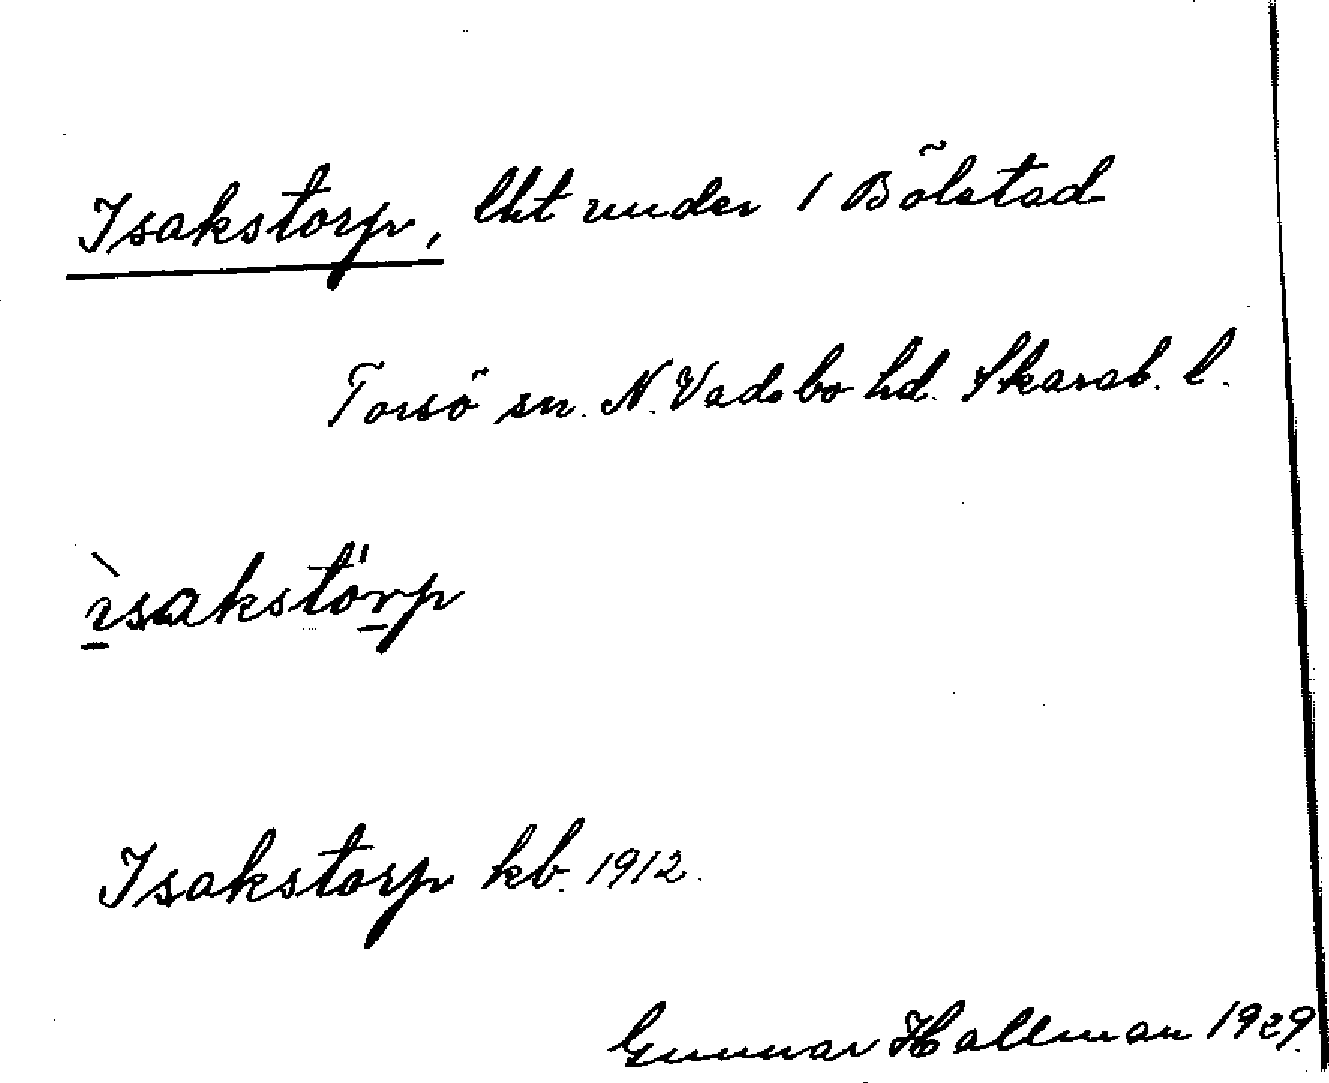 Isakstorp, lht under 1 Bölstad
Torsö sn. N. Vadsbo hd. Skarab. l.
ìsakstórp
Isakstorp kb. 1912.
Gunnar Hallman 1929.